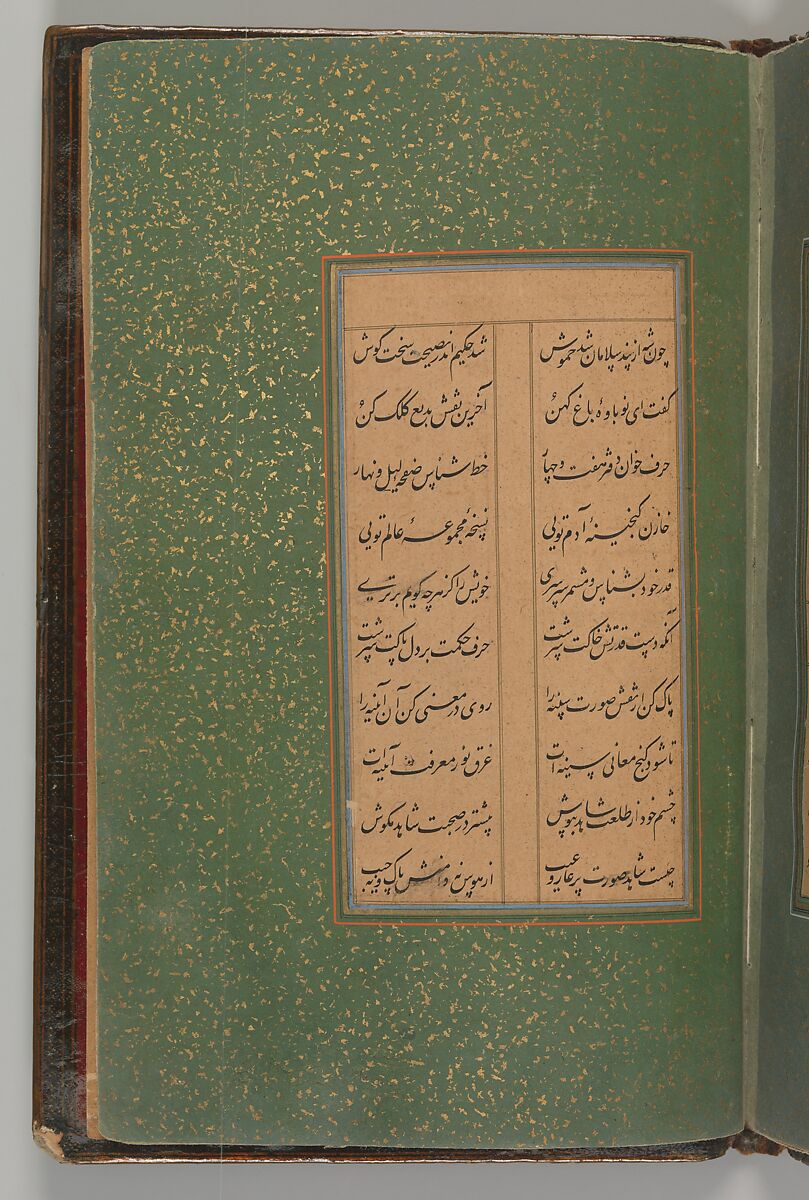 چون شه از پند سلامان شد خموش شد حکیم اندر نصیحت سخت کوش
گفت ای نوباوهٔ باغ کهن آخرین نقش بدیع کلک کن
حرف خوان دفتر هفت و چهار خط شناس صفحهٔ لیل و نهار
خازن گنجینهٔ آدم تویی نسخهٔ مجموعهٔ عالم تویی
قدر خود بشناس و مشمر سرسری خویش را کز هر چه گویم برتری
آنکه دست قدرتش خاکت سرشت حرف حکمت بر دل پاکت نبشت
پاک کن از نقش صورت سینه را روی در معنی کن آن آیینه را
تا شود گنج معانی سینه‌ات غرق نور معرفت آیینه‌ات
چشم خود از طلعت شاهد بپوش بیشتر در صحبت شاهد مکوش
چیست شاهد صورت پر عار و عیب از هوس نه دامنش پاک و نه جیب